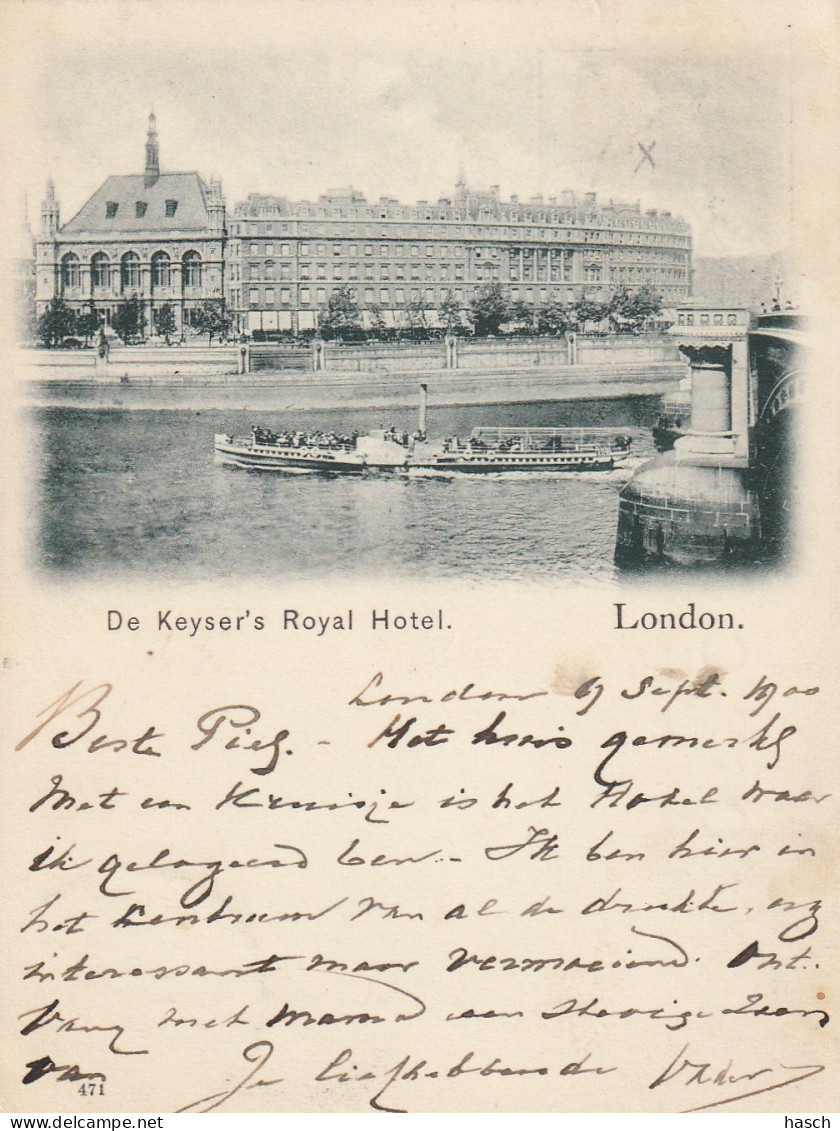 De Keyser's Royal Hotel. London.
London 19 Sept. 1900
Beste Piet. - Het huis gemerkt
Met een Kruisje is het Hotel waar
ik gelogeerd ben. - Ik ben hier in
het Centrum van al de drukte, erg
interessant maar vermoeiend. Ont-
vang met Mama een stevige Zoen
van Je liefhebbende Vader
471
hasch